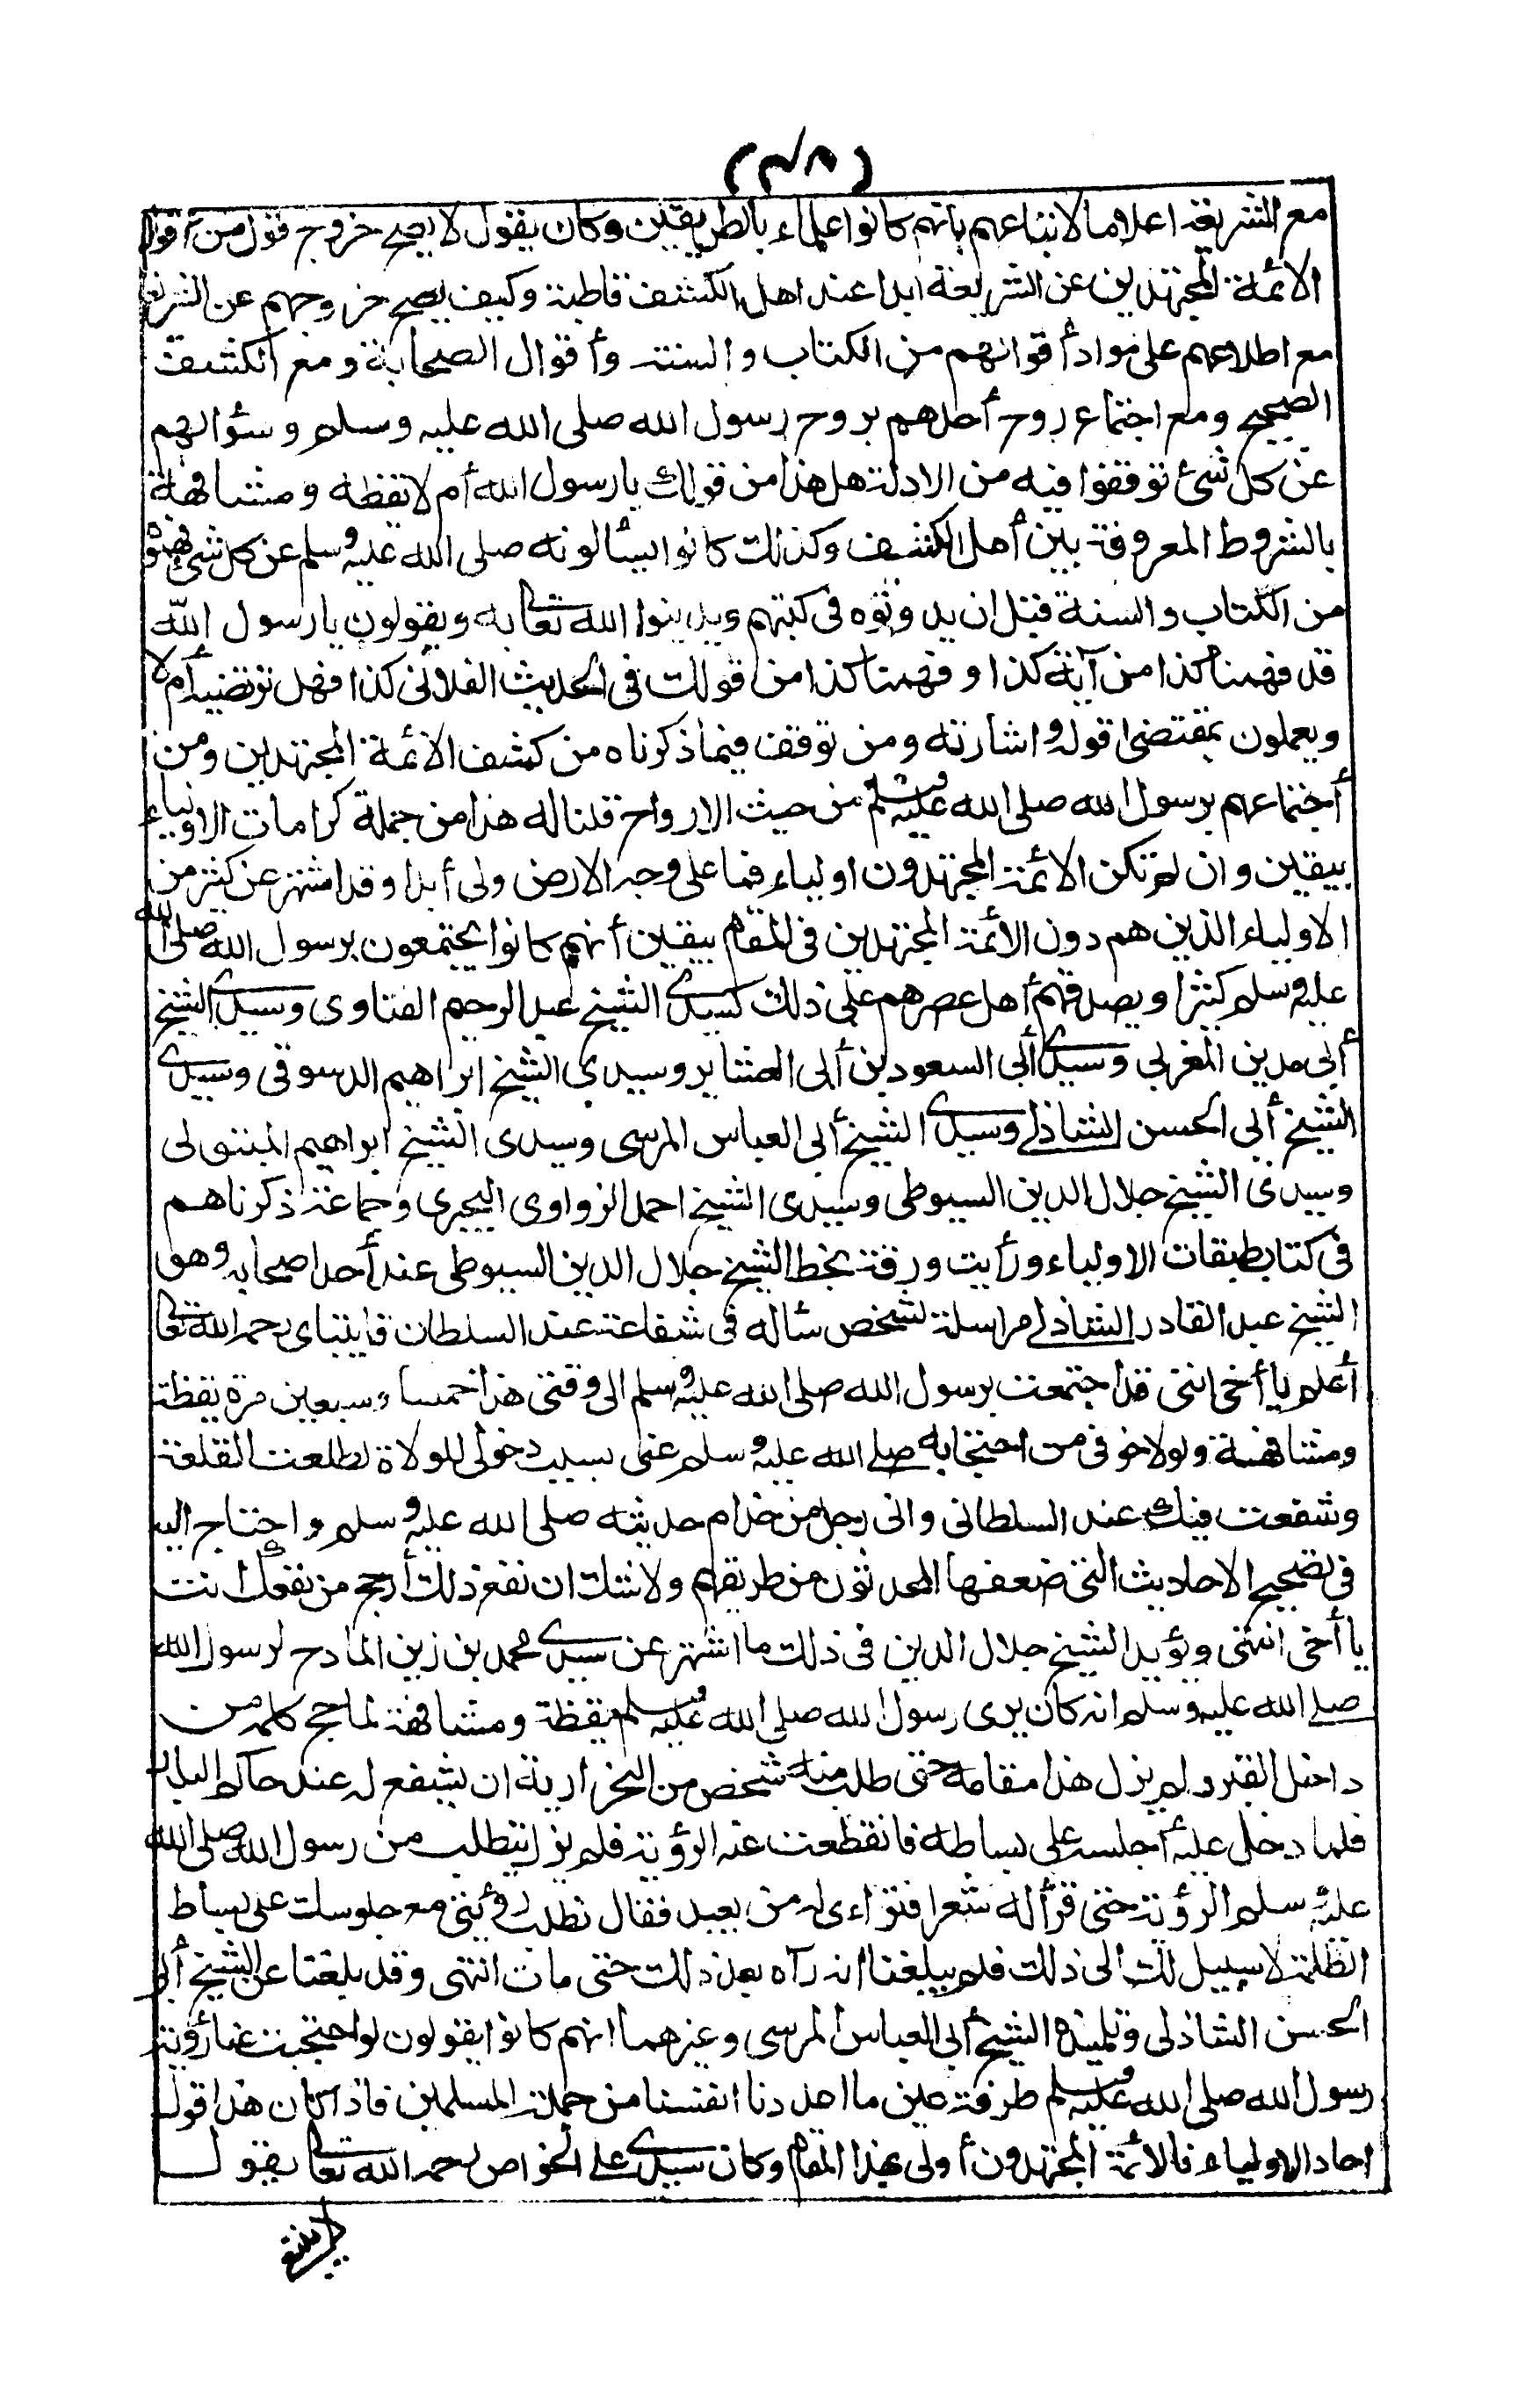 (٣٨)
مع الشريعة اعلاما لاتباعهم بانهم كانوا علماء بالطريقين وكان يقول لا يصح خروج قول من أقوال
الائمة المجتهدين عن الشريعة ابدا عند اهل الكشف قاطبة وكيف يصح خروجهم عن الشريعة
مع اطلاعهم على مواد أقوالهم من الكتاب والسنة وأقوال الصحابة ومع الكشف
الصحيح ومع اجتماع روح أحدهم بروح رسول الله صلى الله عليه وسلم وسؤالهم
عن كل شئ توقفوا فيه من الادلة هل هذا من قولك يا رسول الله أم لا يقظة ومشافهة
بالشروط المعروفة بين أهل الكشف وكذلك كانوا يسألونه صلى الله عليه وسلم عن كل شئ فهموه
من الكتاب والسنة قبل ان يدونوه في كتبهم ويدينوا الله تعالى به ويقولون يا رسول الله
قد فهمنا كذا من آية كذا وفهمنا كذا من قولك في الحديث الفلاني كذا فهل ترتضيه أم لا
ويعملون بمقتضى قوله واشارته ومن توقف فيما ذكرناه من كشف الائمة المجتهدين ومن
أجتماعهم برسول الله صلى الله عليه وسلم من حيث الارواح قلنا له هذا من جملة كرامات الاولياء
بيقين وان لم تكن الائمة المجتهدون اولياء فما على وجه الارض ولى أبدا وقد اشتهر عن كثير من
الاولياء الذين هم دون الائمة المجتهدين في المقام بيقين أنهم كانوا يجتمعون برسول الله صلى الله
عليه وسلم كثيرا ويصدقهم أهل عصرهم على ذلك كسيدى الشيخ عبد الرحيم القناوى وسيدى الشيخ
أبى مدين المغربى وسيدى أبى السعود بن أبى العشاير وسيدى الشيخ ابراهيم الدسوقى وسيدى
الشيخ أبى الحسن الشاذلى وسيدى الشيخ أبى العباس المرسى وسيدى الشيخ ابراهيم المتبولى
وسيدى الشيخ جلال الدين السيوطى وسيدى الشيخ احمد الزواوى البحيرى وجماعة ذكرناهم
في كتاب طبقات الاولياء ورأيت ورقة بخط الشيخ جلال الدين السيوطى عند أحد اصحابه وهو
الشيخ عبد القادر الشاذلى مراسلة لشخص سأله في شفاعة عند السلطان قايتباى رحمه الله تعالى
أعلم يا أخى اننى قد اجتمعت برسول الله صلى الله عليه وسلم الى وقتى هذا خمسا وسبعين مرة يقظة
ومشافهة ولولا خوفى من احتجابه صلى الله عليه وسلم عنى بسبب دخولى للولاة لطلعت القلعة
وشفعت فيك عند السلطانى وانى رجل من خدام حديثه صلى الله عليه وسلم واحتاج اليه
في تصحيح الاحاديث التى ضعفها المحدثون من طريقهم ولا شك ان نفع ذلك أرجح من نفعك انت
يا أخى انتهى ويؤيد الشيخ جلال الدين في ذلك ما اشتهر عن سيدى محمد بن زين المادح لرسول الله
صلى الله عليه وسلم انه كان يرى رسول الله صلى الله عليه وسلم يقظة ومشافهة لما حج كلمه من
داخل القبر ولم يزل هذا مقامه حتى طلب منه شخص من النحرارية ان يشفع له عند حاكم البلد
فلما دخل عليه أجلسه على بساطه فانقطعت عنه الرؤية فلم يزل يتطلب من رسول الله صلى الله
عليه وسلم الرؤية حتى قرأ له شعرا فتراءى له من بعيد فقال تطلب رؤيتى مع جلوسك على بساط
الظلمة لا سبيل لك الى ذلك فلم يبلغنا انه رآه بعد ذلك حتى مات انتهى وقد بلغنا عن الشيخ أبى
الحسن الشاذلى وتلميذه الشيخ أبى العباس المرسى وغيرهما انهم كانوا يقولون لو احتجبت عنا رؤية
رسول الله صلى الله عليه وسلم طرفة عين ما اعددنا انفسنا من جملة المسلمين فاذا كان هذا قول
احاد الاولياء فالائمة المجتهدون أولى بهذا المقام وكان سيدى على الخواص رحمه الله تعالى يقول